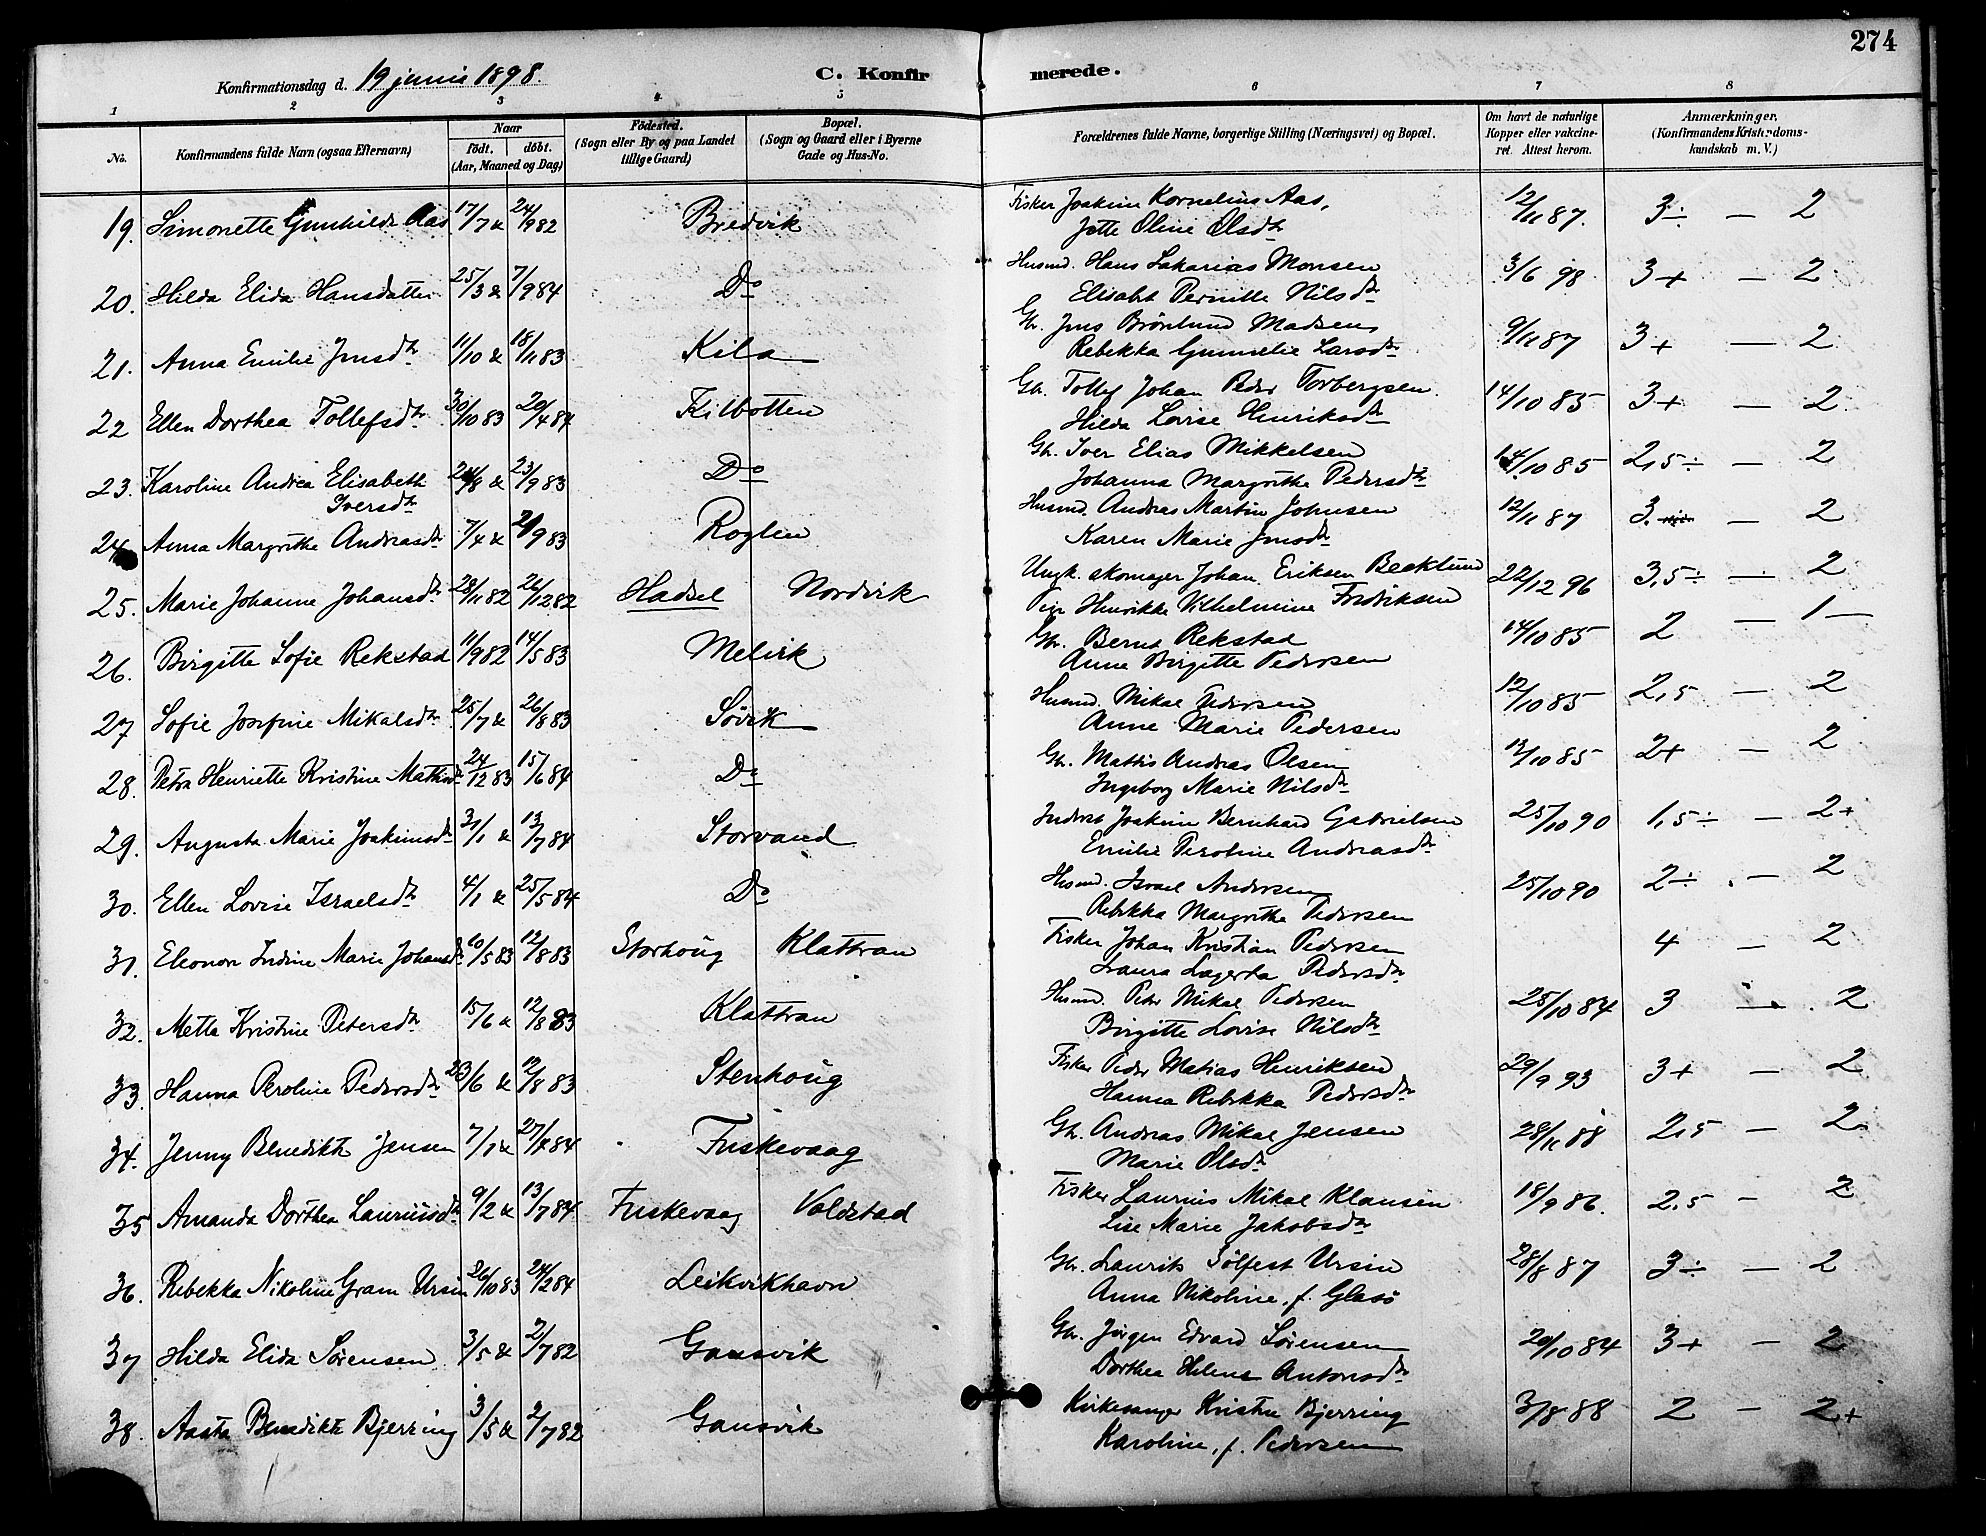 274
Konfirmationsdag d. 19 junii 1898.
C. Konfirmerede.
1 2 3 4 5 6 7 8
No.
Konfirmandens fulde Navn (ogsaa Efternavn)
Naar
födt. döbt.
(Aar, Maaned og Dag)
Födested.
(Sogn eller By og paa Landet
tillige Gaard)
Bopæl.
(Sogn og Gaard eller i Byerne
Gade og Hus-No.
Forældrenes fulde Navne, borgerlige Stilling (Næringsvei) og Bopæl.
Om havt de naturlige
Kopper eller vakcine-
ret. Attest herom.
Anmærkninger.
(Konfirmandens Kristendoms-
kundskab m. V.)
19. Simonette Gunhilda Aas 17/7 & 24/9 82 Bredvik Fisker Joakim Kornelius Aas, 12/11 87. 3÷ — 2
Jette Oline Olsdtr
20. Hilda Elida Hansdatter 25/3 & 7/9 84 Do Husmd. Hans Sakarias Monsen 3/6 98 3+ — 2
Elisabet Pernille Nilsdtr
21. Anna Emilie Jensdtr 11/10 & 18/11 83 Kila Gbr. Jens Brönlund Madsen 9/11 87 3+ — 2
Rebekka Gunnelie Larsdtr
22 Ellen Dorthea Tollefsdtr 30/10 83 20/4 84 Kilbotten Gbr. Tollef Johan Peder Torbergsen 14/10 85 3+ — 2
Hilda Lovise Henriksdtr
23. Karoline Andrea Elisabeth 24/8 & 23/9 83 Do Gbr. Iver Elias Mikkelsen 14/10 85 2,5÷ — 2
Iversdtr Johanna Margrethe Pedersdtr
24. Anna Margrethe Andreasdtr 7/4 & 2/9 83 Roglen Husmd. Andreas Martin Johnsen 12/11 87 3. — 2
Karen Marie Jensdtr
25. Marie Johanne Johansdtr 28/11 82 26/12 82 Hadsel Nordvik Ungk. skomager Johan Eriksen Becklund 22/12 96 3,5÷ — 2
Pige Henrikke Vilhelmine Fredriksen
26. Birgitte Sofie Rekstad 11/9 82 14/5 83 Melvik Gbr. Bernt Rekstad 14/10 85 2 — 1—
Anne Birgitte Pedersen
27 Sofie Josefine Mikalsdtr 25/7 & 26/8 83 Sörvik Husmd. Mikal Pedersen 12/10 85 2,5 — 2
Anne Marie Pedersen
28. Petra Henriette Kristine Mathisdtr 24/12 83 15/6 84 Do Gbr. Mattis Andreas Olsen 13/10 85 2+ — 2
Ingeborg Marie Nilsdtr
29. Augusta Marie Joakimsdtr 31/1 & 13/7 84 Storvand Inderst Joakim Bernhard Gabrielsen 25/10 90 1,5÷ — 2+
Emilie Peroline Andreasdtr
30. Ellen Lovise Israelsdtr 4/1 & 25/5 84 Do Husmd. Israel Andersen 25/10 90 2÷ — 2
Rebekka Margrethe Pedersen
31. Eleonora Indine Marie Johansdtr 10/5 83 12/8 83 Storhoug Klattran Fisker Johan Kristian Pedersen 4 — 2
Laura Lagerta Pedersdtr
32. Metta Kristine Petersdtr 15/6 & 12/8 83 Klattran Husmd. Peter Mikal Pedersen 25/10 84 3 — 2
Birgitte Lovise Nilsdtr
33. Hanna Peroline Pedersdtr 23/6 & 12/8 83 Stenhoug Fisker Peder Matias Henriksen 29/9 93 3+ — 2
Hanna Rebekka Pedersdtr
34. Jenny Benedikte Jensen 7/1 & 27/4 84 Fuskevaag Gbr. Andreas Mikal Jensen 28/11 88 2,5 — 2
Marie Olsdtr
35 Amanda Dorthea Lauriusdtr 9/2 & 13/7 84 Fuskevaag Voldstad Fisker Laurius Mikal Klausen 18/9 86. 2,5 — 2
Lise Marie Jakobsdtr
36. Rebekka Nikoline Gram Ursin 26/10 83 24/2 84 Leikvikhavn Gbr. Laurits Sölfest Ursin 28/8 87 3÷ — 2
Anna Nikoline, f. Glasö
37 Hilda Elida Sörensen 3/5 & 2/7 82 Gausvik Gbr. Jörgen Edvard Sörensen 20/10 84 3+ — 2
Dorthea Helene Antonsdtr
38. Aasta Benedikte Bjerring 3/5 & 2/7 82 Gausvik Kirkesanger Kristen Bjerring 3/8 88 2 — 2+
Karoline, f. Pedersen